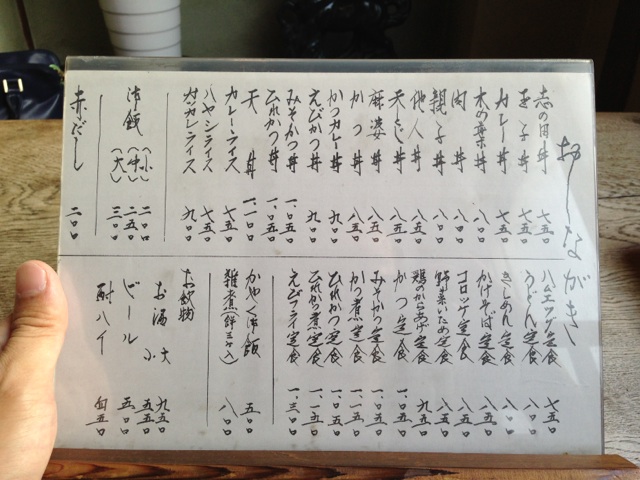 おしながき
志の田丼 七五〇
玉子丼 七五〇
カレー丼 七五〇
木の葉丼 八〇〇
肉丼 八〇〇
親子丼 八〇〇
他人丼 八五〇
天とじ丼 八五〇
麻婆丼 八五〇
かつ丼 八五〇
かつカレー丼 九〇〇
えびかつ丼 九〇〇
みそかつ丼 一、〇五〇
ひれかつ丼 一、〇五〇
天丼 一、一〇〇
カレーライス 七五〇
ハヤシライス 七五〇
カツカレーライス 九〇〇
御飯（小） 二〇〇
（中） 二五〇
（大） 三〇〇
赤だし 二〇〇
ハムエッグ定食 七五〇
うどん定食 八〇〇
きしめん定食 八〇〇
かけそば定食 八五〇
コロッケ定食 八五〇
野菜いため定食 八五〇
鶏のからあげ定食 九五〇
かつ定食 一、〇五〇
みそかつ定食 一、〇五〇
かつ煮定食 一、一五〇
ひれかつ定食 一、〇五〇
ひれかつ煮定食 一、一五〇
えびフライ定食 一、三〇〇
かやく御飯 五〇〇
雑煮（餅三ヶ入） 八〇〇
お飲物
お酒 大 九五〇
小 五五〇
ビール 五〇〇
酎ハイ 四五〇